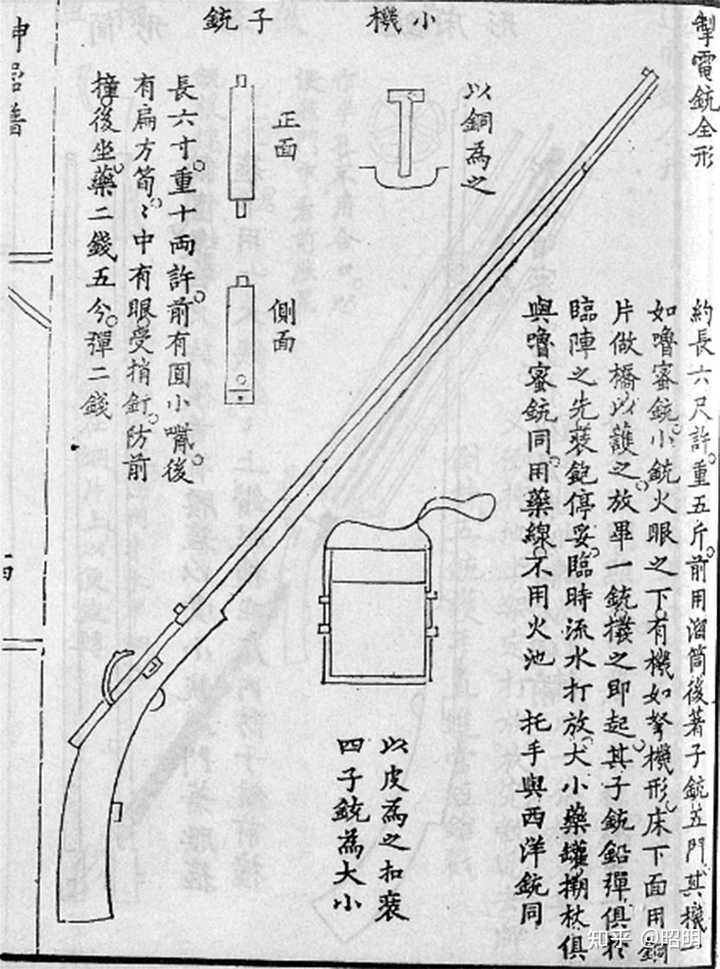 掣電銃全形
約長六尺許。重五斤。前用溜筒後著子銃五門。其機一
如嚕密銃。小銃火眼之下有機如弩機形。床下面用銅
片做橋以護之。放畢一銃撥之即起其子銃鉛彈俱於
臨陣之先裝飽停妥。臨時流水打放。大小藥罐搠杖俱
與嚕蜜銃同。用藥線。不用火池 托手與西洋銃同
小機
以銅為之
以皮為之扣裝
四子銃為大小
子銃
正面
側面
長六寸。重十兩許。前有圓小嘴。後
有扁方筍。〻中有眼。受捎釘。防前
撞後坐。藥二錢五分。彈二錢
神器譜
知乎 @昭明